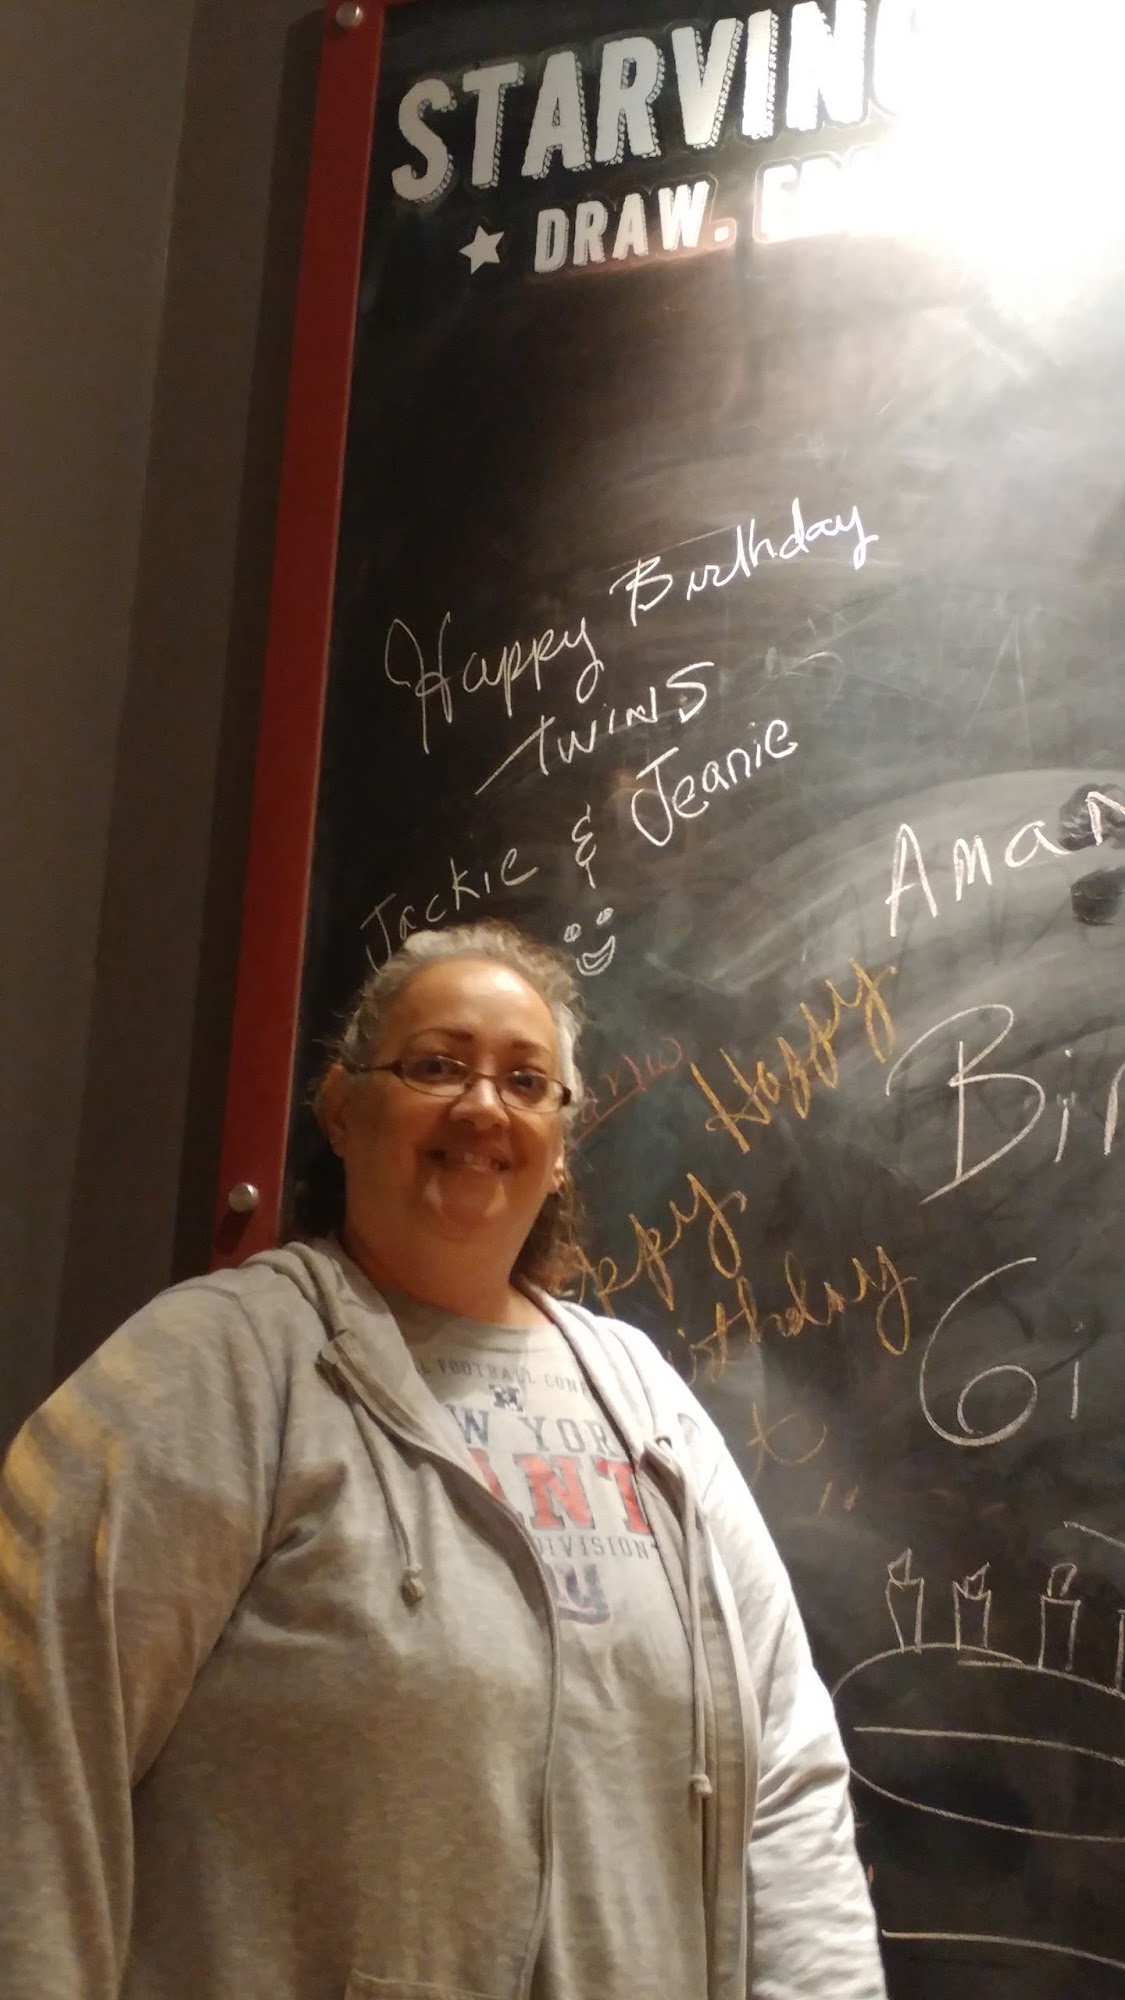 STARVING
★ DRAW.
Happy Birthday
TWINS
Jackie & Jeanie
Aman
Happy
Bir
Happy
Birthday
61
NEW YORK
GIANTS
DIVISION
ny